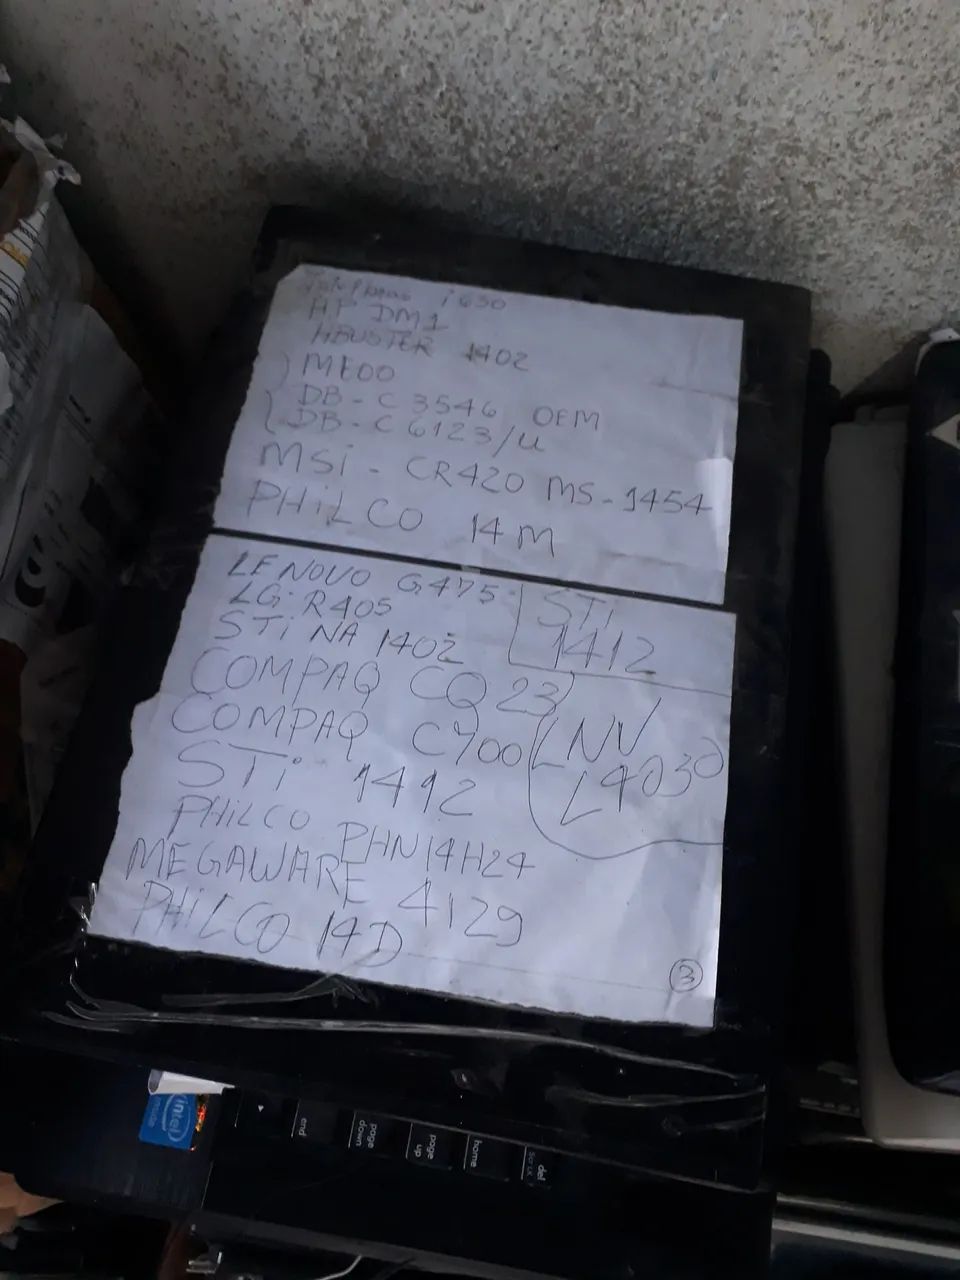 i 630
HP DM1
HBUSTER 1402
MEOO
DB - C 3546 OEM
DB - C 6123/U
MSi - CR420 MS - 1454
PHILCO 14 M
LENOVO G475
LG: R405
STi NA 1402
STi
1412
COMPAQ CQ 23
COMPAQ C700
LNV
STi 1412
PHILCO PHN14H24
MEGAWARE 4129
PHILCO 14D
3
intel
inside
end
page
down
page
up
home
del